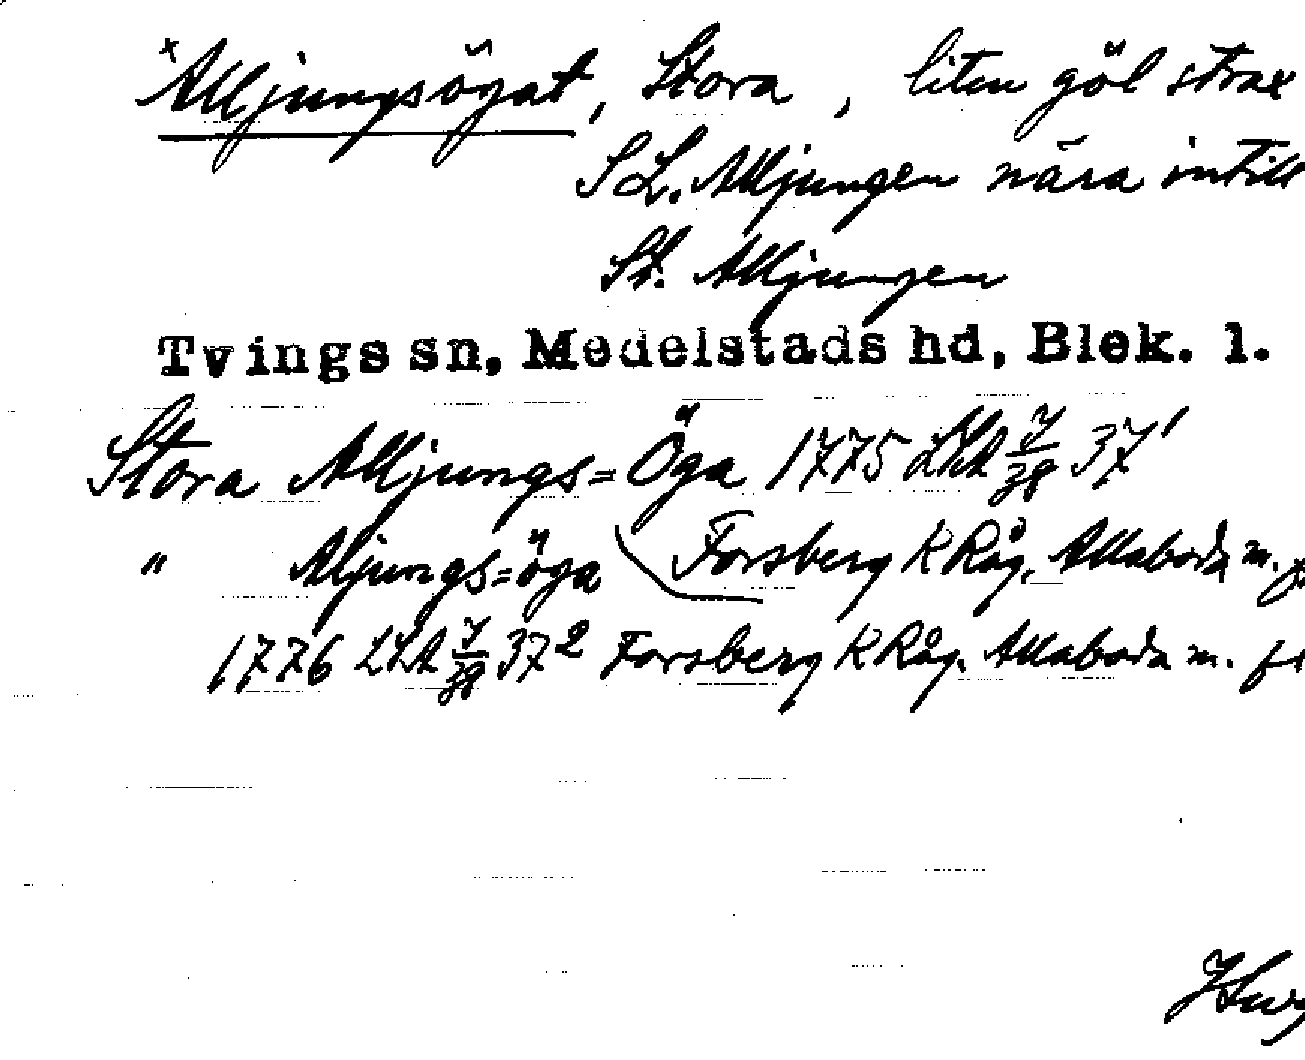 *Alljungsögat, Stora, liten göl strax
S L. Alljungen nära intill
St. Alljungen
Tvings sn, Medelstads hd, Blek. l.
Stora Alljungs=Öga 1775 LSA J/38 37¹
" Aljungs=öga Forsberg K Råg. Allaboda m.
1776 LSA J/38 37² Forsberg K Råg. Allaboda m.